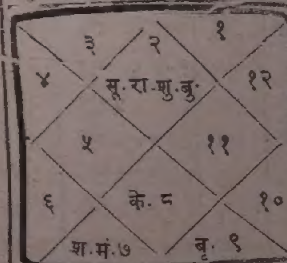 ३ २ १
४ सू. रा. शु. बु. १२
५ ११
६ के. ८ १०
श. मं. ७ बृ. ९